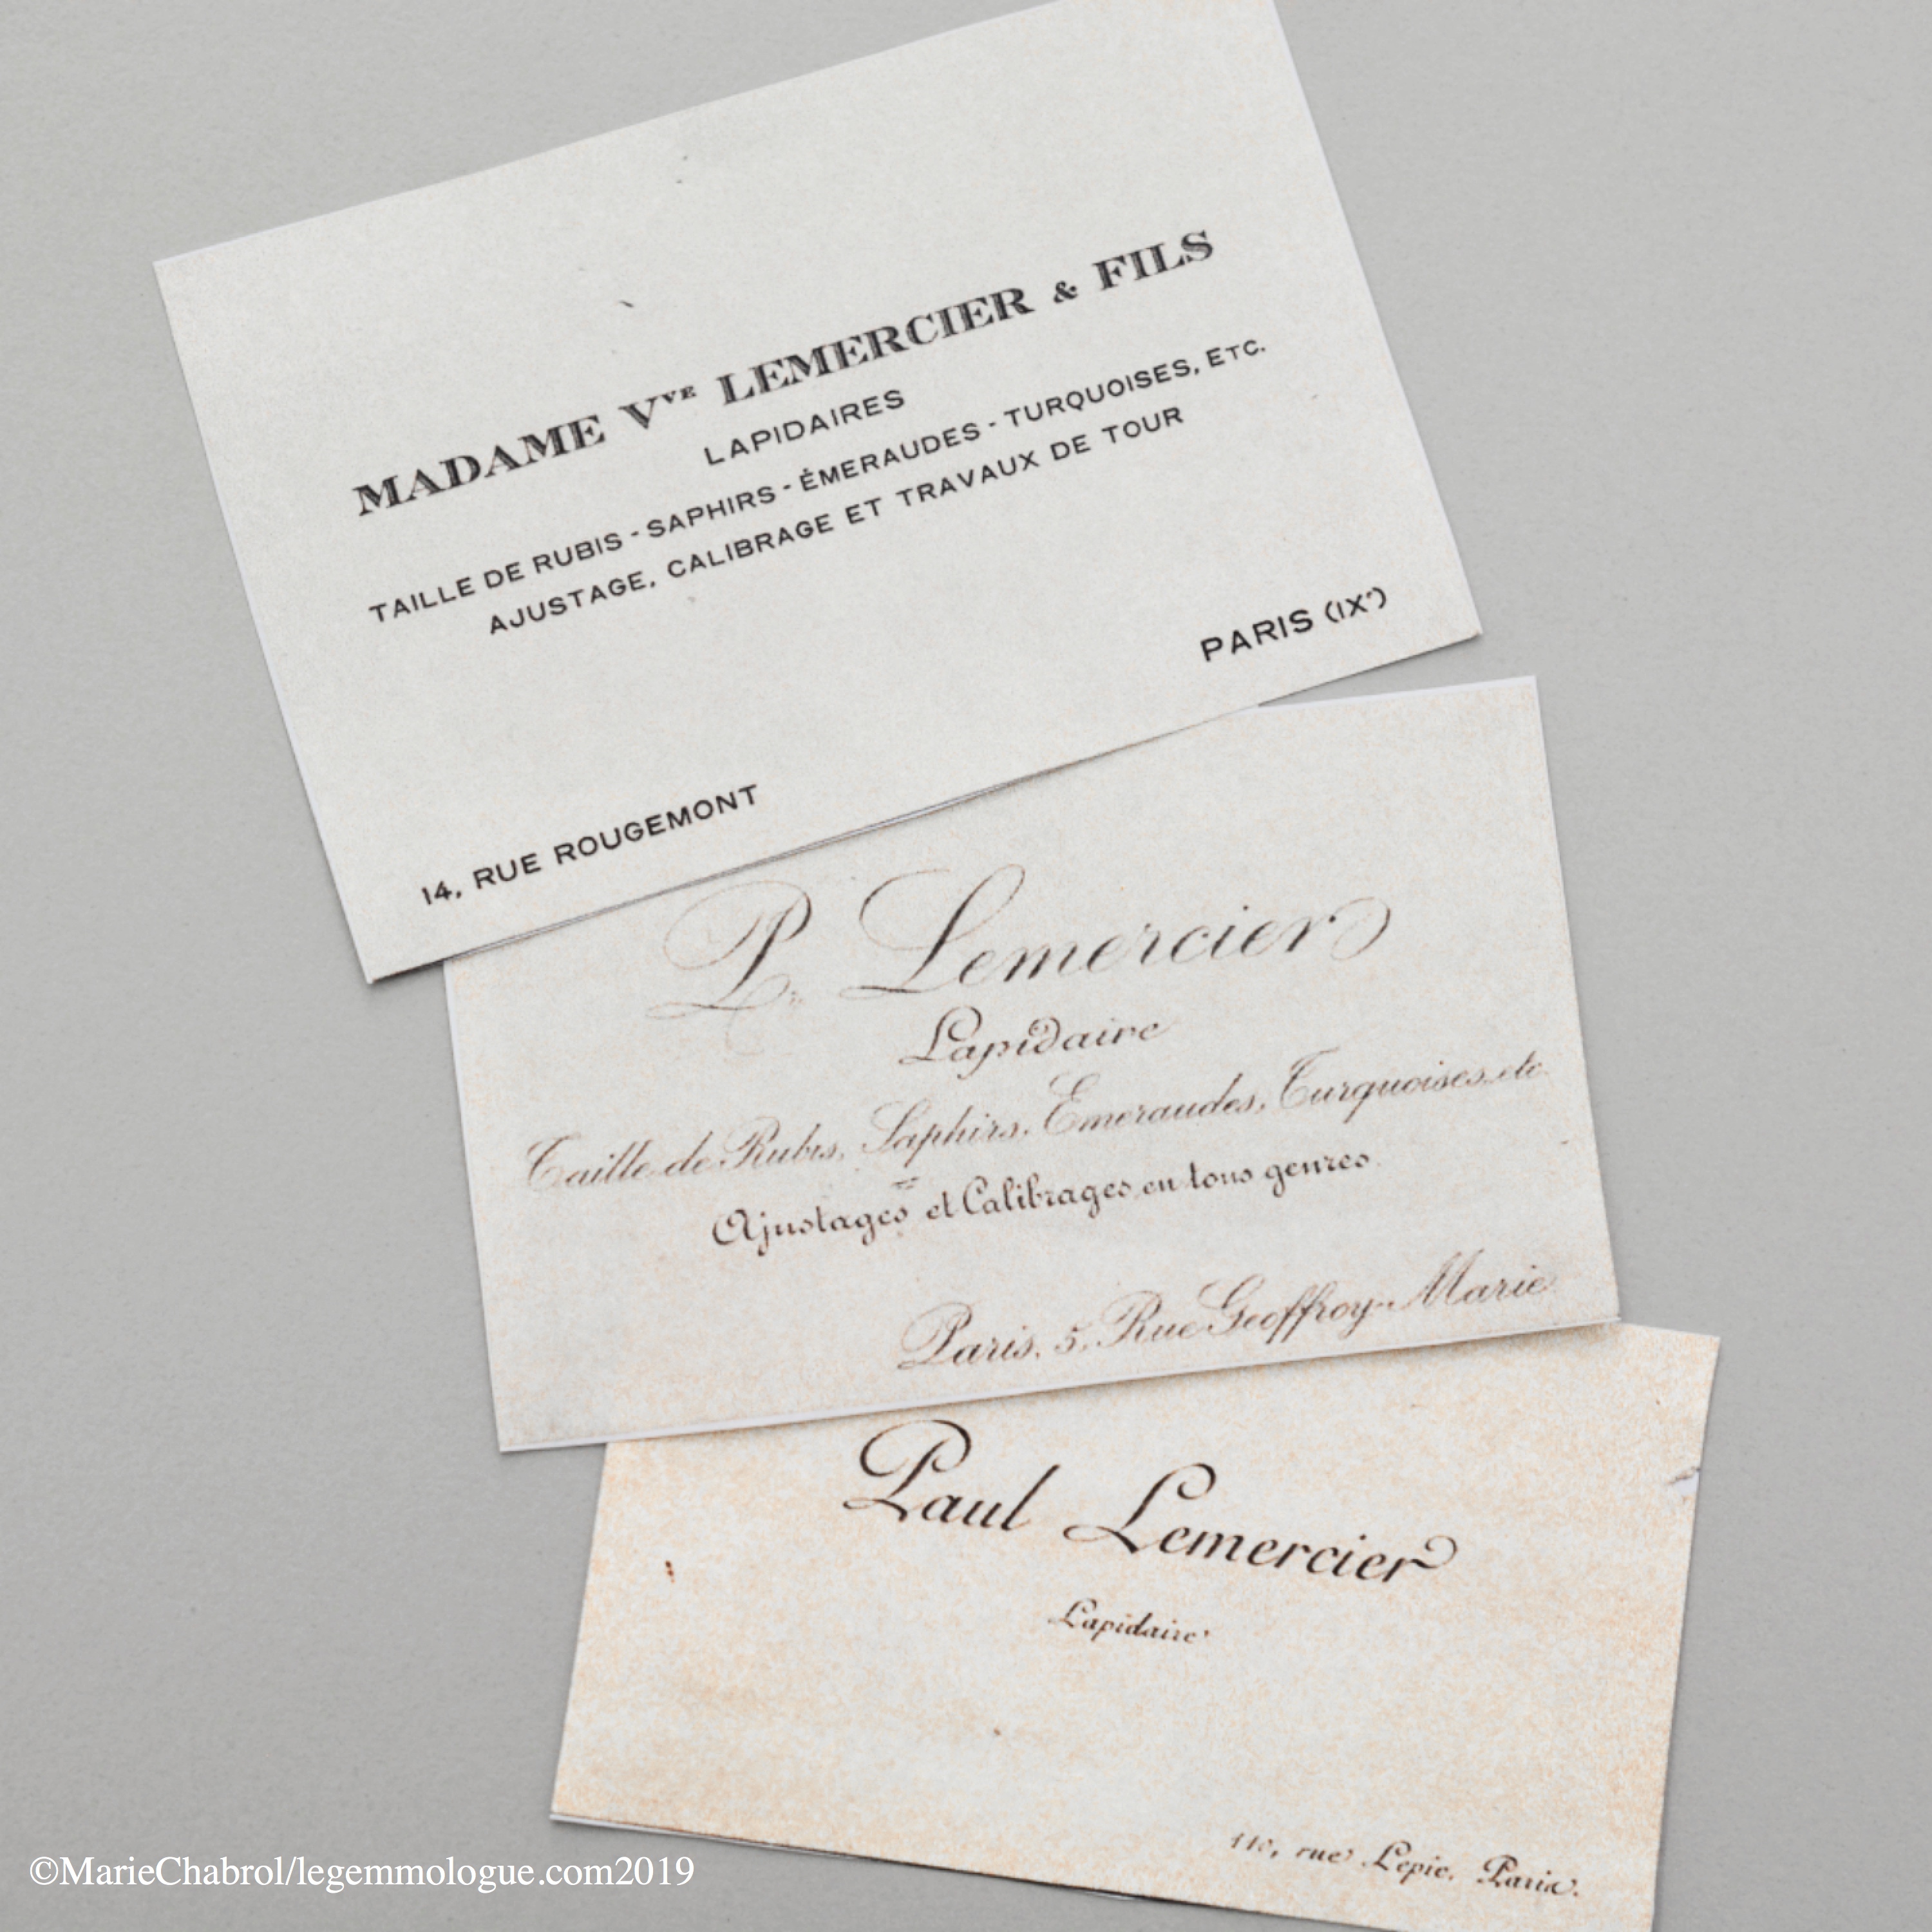 MADAME Vve LEMERCIER & FILS
LAPIDAIRES
TAILLE DE RUBIS - SAPHIRS - ÉMERAUDES - TURQUOISES, ETC.
AJUSTAGE, CALIBRAGE ET TRAVAUX DE TOUR
PARIS (IXe)
14, RUE ROUGEMONT
P. Lemercier
Lapidaire
Taille de Rubis, Saphirs, Emeraudes, Turquoises, etc
Ajustages et Calibrages en tous genres
Paris, 5, Rue Geoffroy-Marie
Paul Lemercier
Lapidaire
110, rue Lepic, Paris.
©MarieChabrol/legemmologue.com2019